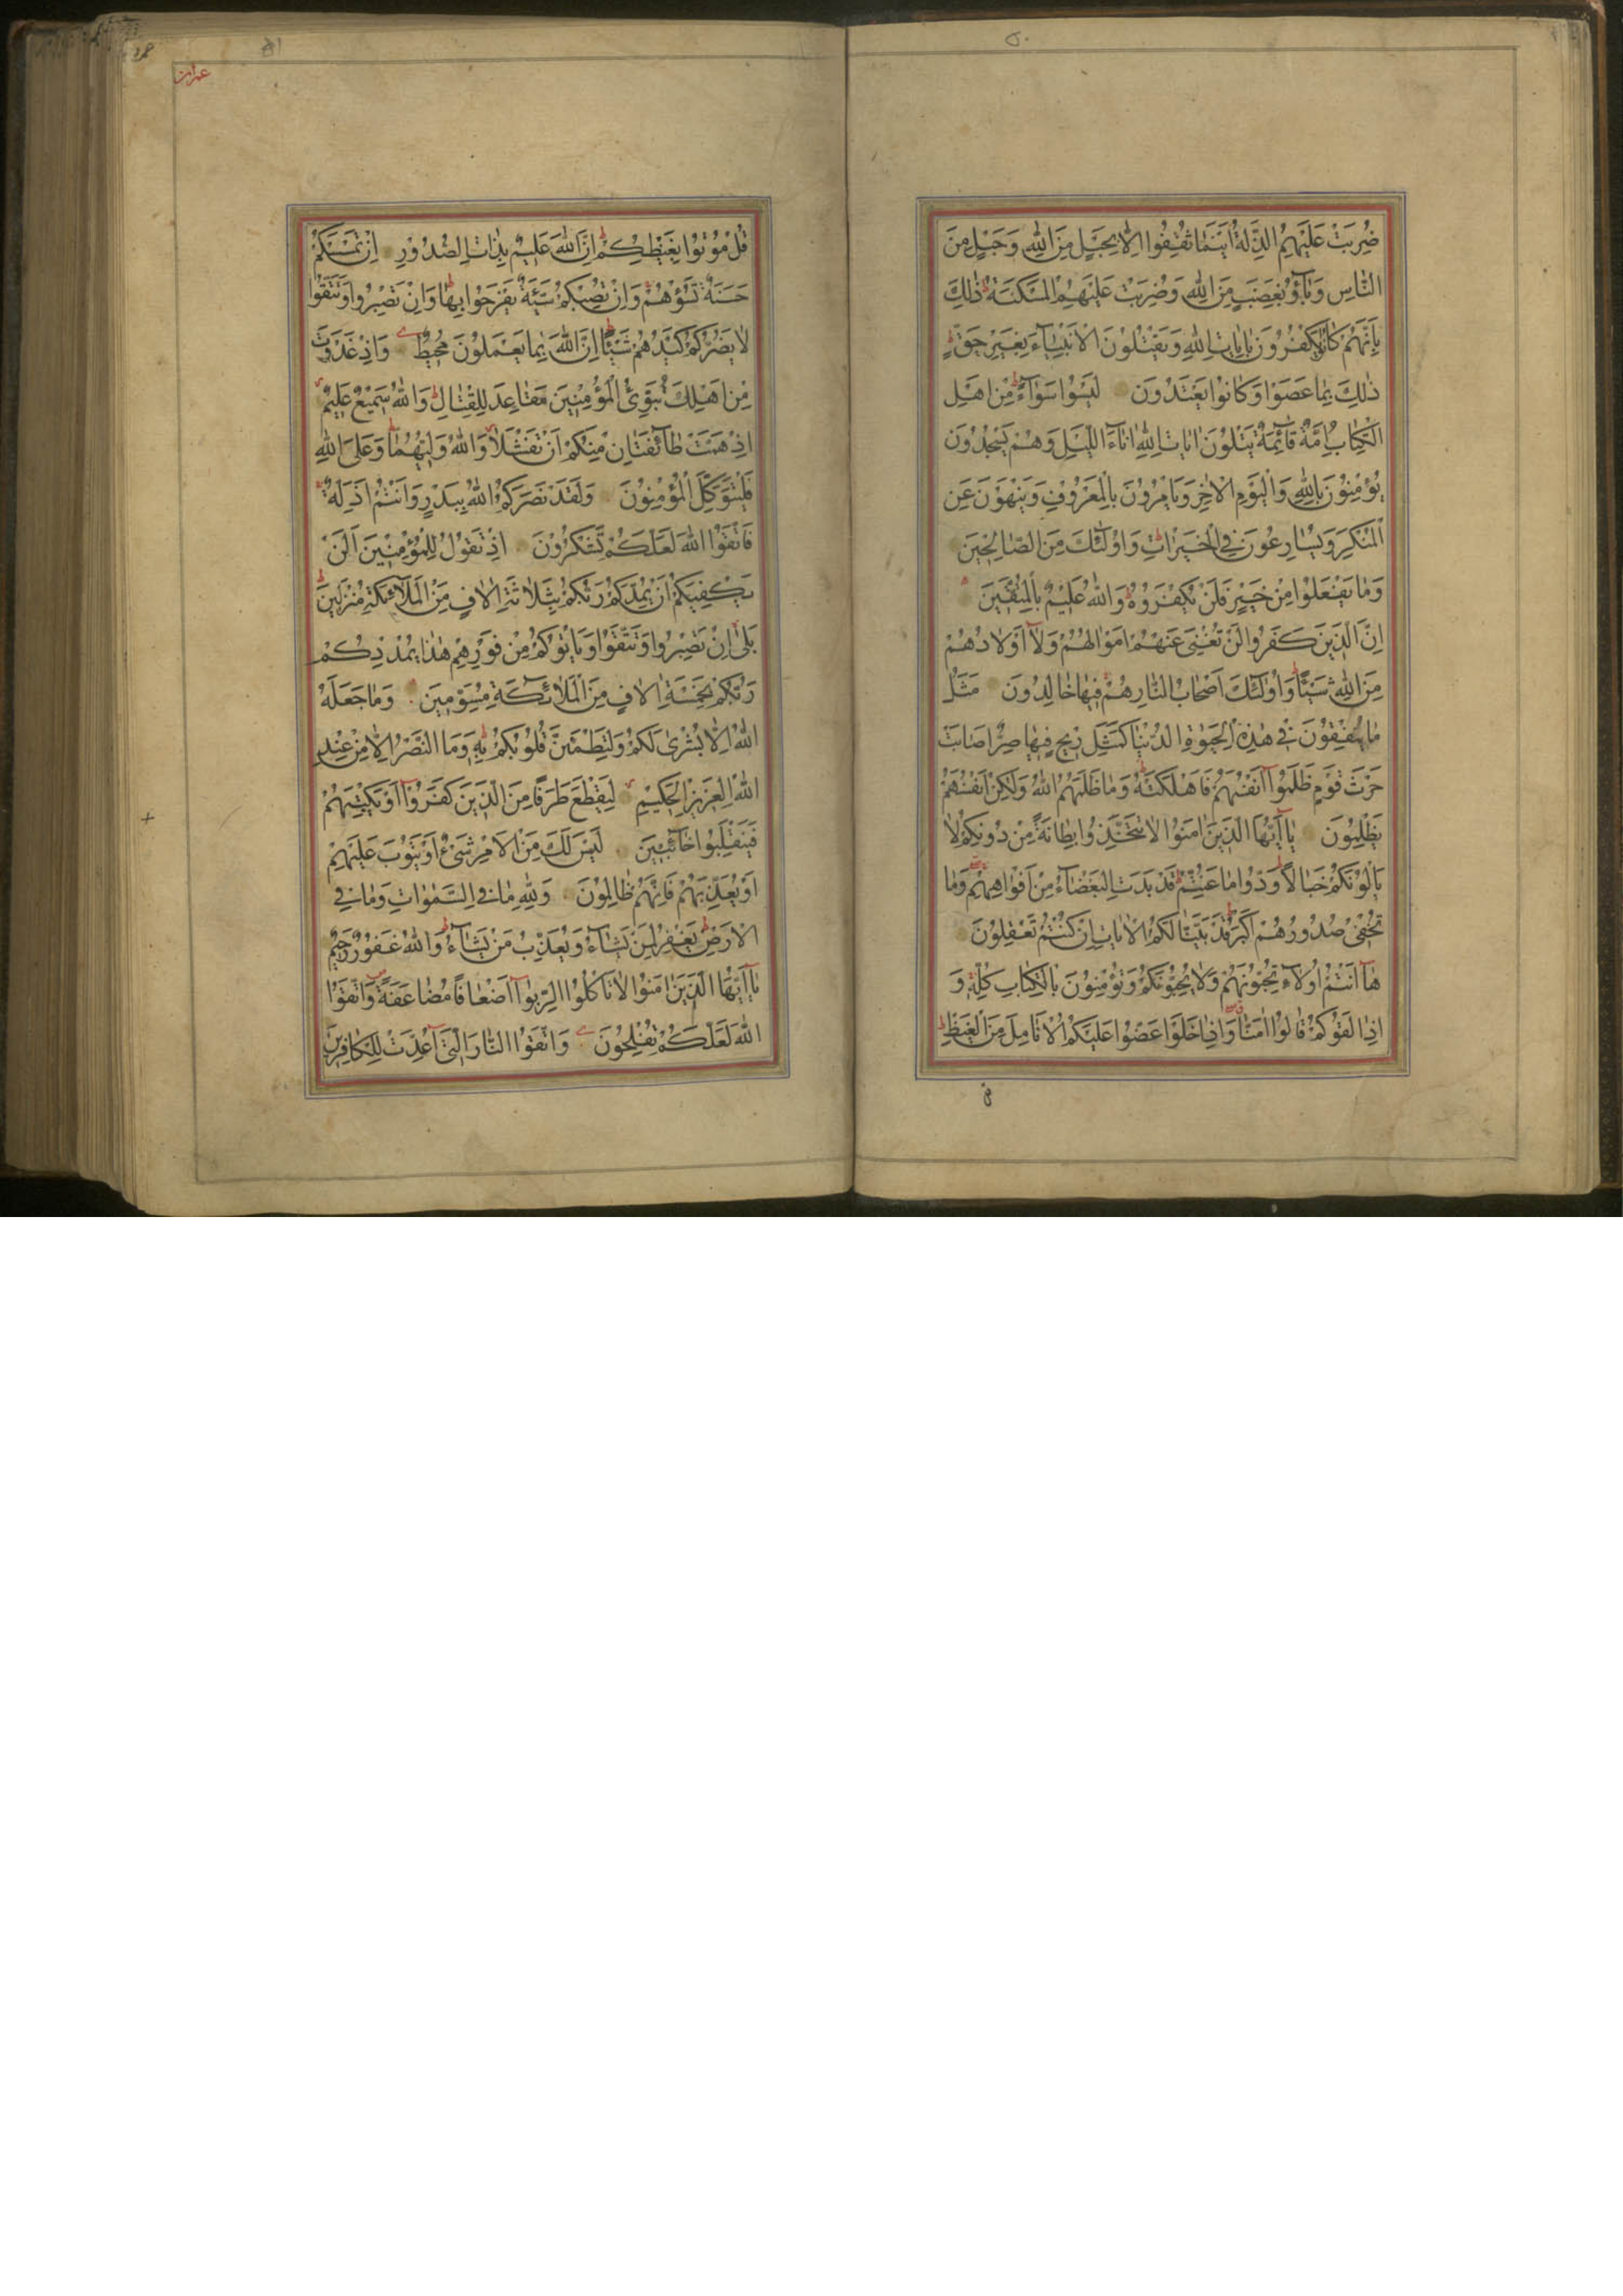 ٥٠
ضُرِبَتْ عَلَيْهِمُ الذِّلَّةُ اَيْنَمَا ثُقِفُوا اِلَّا بِحَبْلٍ مِنَ اللّٰهِ وَحَبْلٍ مِنَ
النَّاسِ وَبَآؤُ بِغَضَبٍ مِنَ اللّٰهِ وَضُرِبَتْ عَلَيْهِمُ الْمَسْكَنَةُ ذٰلِكَ
بِاَنَّهُمْ كَانُوا يَكْفُرُونَ بِاٰيَاتِ اللّٰهِ وَيَقْتُلُونَ الْاَنْبِيَآءَ بِغَيْرِ حَقٍّ
ذٰلِكَ بِمَا عَصَوْا وَكَانُوا يَعْتَدُونَ لَيْسُوا سَوَآءً مِنْ اَهْلِ
الْكِتَابِ اُمَّةٌ قَآئِمَةٌ يَتْلُونَ اٰيَاتِ اللّٰهِ اٰنَآءَ اللَّيْلِ وَهُمْ يَسْجُدُونَ
يُؤْمِنُونَ بِاللّٰهِ وَالْيَوْمِ الْاٰخِرِ وَيَاْمُرُونَ بِالْمَعْرُوفِ وَيَنْهَوْنَ عَنِ
الْمُنْكَرِ وَيُسَارِعُونَ فِي الْخَيْرَاتِ وَاُولٰٓئِكَ مِنَ الصَّالِحِينَ
وَمَا يَفْعَلُوا مِنْ خَيْرٍ فَلَنْ يُكْفَرُوهُ وَاللّٰهُ عَلِيمٌ بِالْمُتَّقِينَ
اِنَّ الَّذِينَ كَفَرُوا لَنْ تُغْنِيَ عَنْهُمْ اَمْوَالُهُمْ وَلَآ اَوْلَادُهُمْ
مِنَ اللّٰهِ شَيْئًا وَاُولٰٓئِكَ اَصْحَابُ النَّارِ هُمْ فِيهَا خَالِدُونَ مَثَلُ
مَا يُنْفِقُونَ فِي هٰذِهِ الْحَيٰوةِ الدُّنْيَا كَمَثَلِ رِيحٍ فِيهَا صِرٌّ اَصَابَتْ
حَرْثَ قَوْمٍ ظَلَمُوآ اَنْفُسَهُمْ فَاَهْلَكَتْهُ وَمَا ظَلَمَهُمُ اللّٰهُ وَلٰكِنْ اَنْفُسَهُمْ
يَظْلِمُونَ يَآ اَيُّهَا الَّذِينَ اٰمَنُوا لَا تَتَّخِذُوا بِطَانَةً مِنْ دُونِكُمْ لَا
يَاْلُونَكُمْ خَبَالًا وَدُّوا مَا عَنِتُّمْ قَدْ بَدَتِ الْبَغْضَآءُ مِنْ اَفْوَاهِهِمْ وَمَا
تُخْفِي صُدُورُهُمْ اَكْبَرُ قَدْ بَيَّنَّا لَكُمُ الْاٰيَاتِ اِنْ كُنْتُمْ تَعْقِلُونَ
هَآ اَنْتُمْ اُولَآءِ تُحِبُّونَهُمْ وَلَا يُحِبُّونَكُمْ وَتُؤْمِنُونَ بِالْكِتَابِ كُلِّهِ وَ
اِذَا لَقُوكُمْ قَالُوا اٰمَنَّا وَاِذَا خَلَوْا عَضُّوا عَلَيْكُمُ الْاَنَامِلَ مِنَ الْغَيْظِ
قل
٥١
عمران
قُلْ مُوتُوا بِغَيْظِكُمْ اِنَّ اللّٰهَ عَلِيمٌ بِذَاتِ الصُّدُورِ اِنْ تَمْسَسْكُمْ
حَسَنَةٌ تَسُؤْهُمْ وَاِنْ تُصِبْكُمْ سَيِّئَةٌ يَفْرَحُوا بِهَا وَاِنْ تَصْبِرُوا وَتَتَّقُوا
لَا يَضُرُّكُمْ كَيْدُهُمْ شَيْئًا اِنَّ اللّٰهَ بِمَا يَعْمَلُونَ مُحِيطٌ وَاِذْ غَدَوْتَ
مِنْ اَهْلِكَ تُبَوِّئُ الْمُؤْمِنِينَ مَقَاعِدَ لِلْقِتَالِ وَاللّٰهُ سَمِيعٌ عَلِيمٌ
اِذْ هَمَّتْ طَآئِفَتَانِ مِنْكُمْ اَنْ تَفْشَلَا وَاللّٰهُ وَلِيُّهُمَا وَعَلَى اللّٰهِ
فَلْيَتَوَكَّلِ الْمُؤْمِنُونَ وَلَقَدْ نَصَرَكُمُ اللّٰهُ بِبَدْرٍ وَاَنْتُمْ اَذِلَّةٌ
فَاتَّقُوا اللّٰهَ لَعَلَّكُمْ تَشْكُرُونَ اِذْ تَقُولُ لِلْمُؤْمِنِينَ اَلَنْ
يَكْفِيَكُمْ اَنْ يُمِدَّكُمْ رَبُّكُمْ بِثَلَاثَةِ اٰلَافٍ مِنَ الْمَلَآئِكَةِ مُنْزَلِينَ
بَلٰى اِنْ تَصْبِرُوا وَتَتَّقُوا وَيَاْتُوكُمْ مِنْ فَوْرِهِمْ هٰذَا يُمْدِدْكُمْ
رَبُّكُمْ بِخَمْسَةِ اٰلَافٍ مِنَ الْمَلَآئِكَةِ مُسَوِّمِينَ وَمَا جَعَلَهُ
اللّٰهُ اِلَّا بُشْرٰى لَكُمْ وَلِتَطْمَئِنَّ قُلُوبُكُمْ بِهِ وَمَا النَّصْرُ اِلَّا مِنْ عِنْدِ
اللّٰهِ الْعَزِيزِ الْحَكِيمِ لِيَقْطَعَ طَرَفًا مِنَ الَّذِينَ كَفَرُوآ اَوْ يَكْبِتَهُمْ
فَيَنْقَلِبُوا خَآئِبِينَ لَيْسَ لَكَ مِنَ الْاَمْرِ شَيْءٌ اَوْ يَتُوبَ عَلَيْهِمْ
اَوْ يُعَذِّبَهُمْ فَاِنَّهُمْ ظَالِمُونَ وَلِلّٰهِ مَا فِي السَّمٰوَاتِ وَمَا فِي
الْاَرْضِ يَغْفِرُ لِمَنْ يَشَآءُ وَيُعَذِّبُ مَنْ يَشَآءُ وَاللّٰهُ غَفُورٌ رَحِيمٌ
يَآ اَيُّهَا الَّذِينَ اٰمَنُوا لَا تَاْكُلُوا الرِّبٰوآ اَضْعَافًا مُضَاعَفَةً وَاتَّقُوا
اللّٰهَ لَعَلَّكُمْ تُفْلِحُونَ وَاتَّقُوا النَّارَ الَّتِيٓ اُعِدَّتْ لِلْكَافِرِينَ